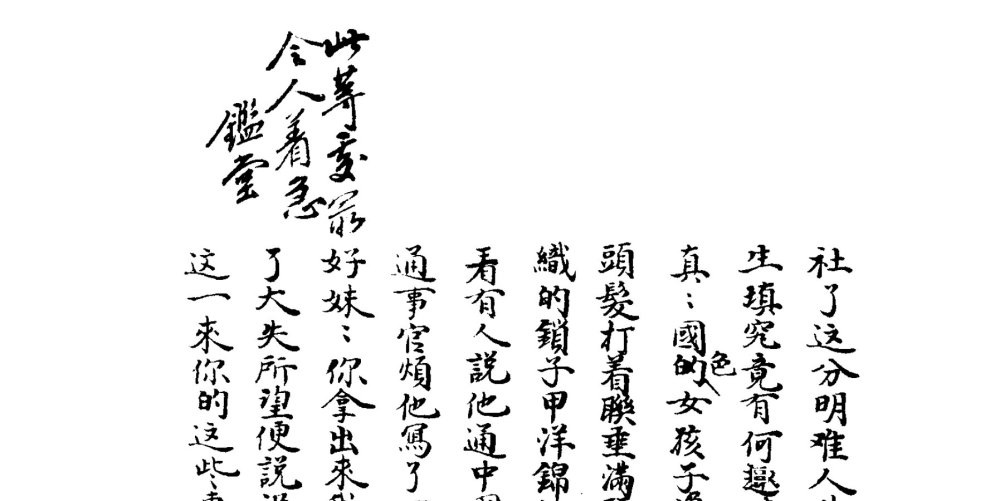 此等處最
令人着急
鑑堂
社了这分明难人
生填究竟有何趣
真〻國的色女孩子
頭髮打着聨垂满
織的鎖子甲洋錦
看有人説他通中
通事官煩他寫了
好妹〻你拿出來
了大失所望便説
这一來你的这些